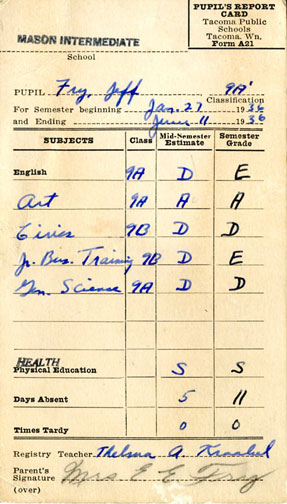 PUPIL'S REPORT
CARD
Tacoma Public
Schools
Tacoma, Wn.
Form A21
MASON INTERMEDIATE
School
PUPIL Fry, Jeff 9A'
Classification
For Semester beginning Jan. 27 1936
and Ending June 11 1936
SUBJECTS Class Mid-Semester Estimate Semester Grade
English 9A D E
Art 9A A A
Civics 9B D D
Jr. Bus. Training 9B D E
Gen. Science 9A D D
HEALTH
Physical Education S S
Days Absent 5 11
Times Tardy 0 0
Registry Teacher Thelma A.
Parent's
Signature Mrs E E Fray
(over)